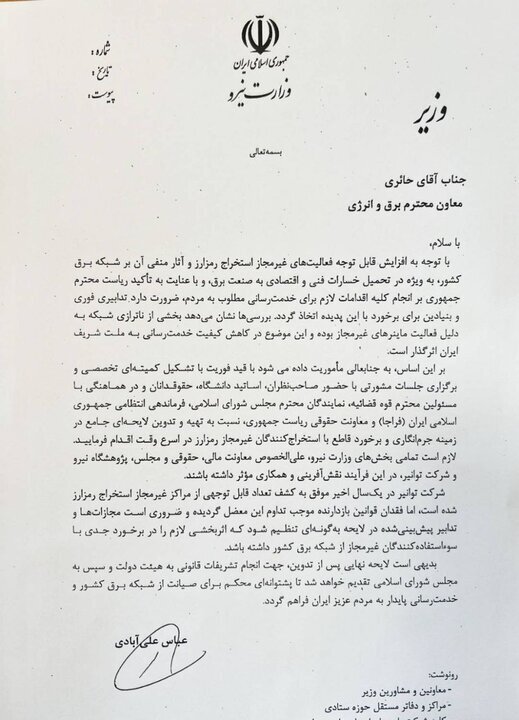 جمهوری اسلامی ایران
وزارت نیرو
شماره :
تاریخ :
پیوست :
وزیر
بسمه‌تعالی
جناب آقای حائری
معاون محترم برق و انرژی
با سلام،
با توجه به افزایش قابل توجه فعالیت‌های غیرمجاز استخراج رمزارز و آثار منفی آن بر شبکه برق
کشور، به ویژه در تحمیل خسارات فنی و اقتصادی به صنعت برق، و با عنایت به تأکید ریاست محترم
جمهوری بر انجام کلیه اقدامات لازم برای خدمت‌رسانی مطلوب به مردم، ضرورت دارد تدابیری فوری
و بنیادین برای برخورد با این پدیده اتخاذ گردد. بررسی‌ها نشان می‌دهد بخشی از ناترازی شبکه به
دلیل فعالیت ماینرهای غیرمجاز بوده و این موضوع در کاهش کیفیت خدمت‌رسانی به ملت شریف
ایران اثرگذار است.
بر این اساس، به جنابعالی مأموریت داده می‌شود با قید فوریت با تشکیل کمیته‌ای تخصصی و
برگزاری جلسات مشورتی با حضور صاحب‌نظران، اساتید دانشگاه، حقوقدانان و در هماهنگی با
مسئولین محترم قوه قضائیه، نمایندگان محترم مجلس شورای اسلامی، فرماندهی انتظامی جمهوری
اسلامی ایران (فراجا) و معاونت حقوقی ریاست جمهوری، نسبت به تهیه و تدوین لایحه‌ای جامع در
زمینه جرم‌انگاری و برخورد قاطع با استخراج‌کنندگان غیرمجاز رمزارز در اسرع وقت اقدام فرمایید.
لازم است تمامی بخش‌های وزارت نیرو، علی‌الخصوص معاونت مالی، حقوقی و مجلس، پژوهشگاه نیرو
و شرکت توانیر، در این فرآیند نقش‌آفرینی و همکاری مؤثر داشته باشند.
شرکت توانیر در یک‌سال اخیر موفق به کشف تعداد قابل توجهی از مراکز غیرمجاز استخراج رمزارز
شده است، اما فقدان قوانین بازدارنده موجب تداوم این معضل گردیده و ضروری است مجازات‌ها و
تدابیر پیش‌بینی‌شده در لایحه به‌گونه‌ای تنظیم شود که اثربخشی لازم را در برخورد جدی با
سوءاستفاده‌کنندگان غیرمجاز از شبکه برق کشور داشته باشد.
بدیهی است لایحه نهایی پس از تدوین، جهت انجام تشریفات قانونی به هیئت دولت و سپس به
مجلس شورای اسلامی تقدیم خواهد شد تا پشتوانه‌ای محکم برای صیانت از شبکه برق کشور و
خدمت‌رسانی پایدار به مردم عزیز ایران فراهم گردد.
عباس علی‌آبادی
رونوشت:
- معاونین و مشاورین وزیر
- مراکز و دفاتر مستقل حوزه ستادی